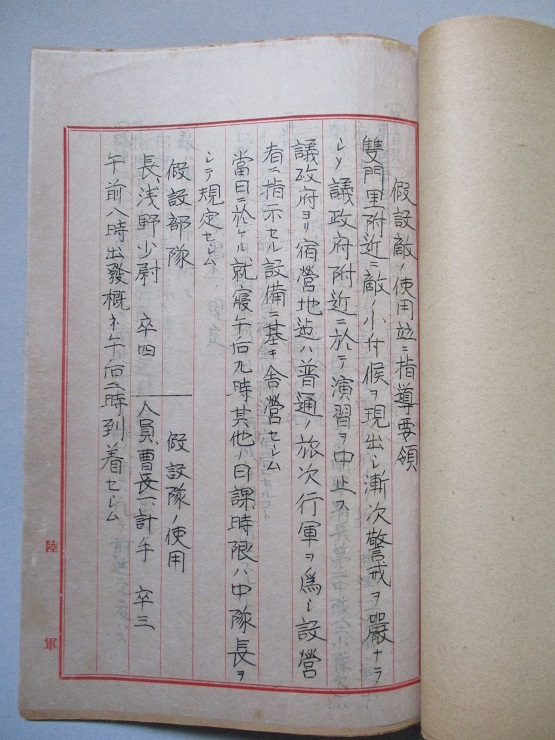 假設敵ノ使用並ニ指導要領
雙門里附近ニ敵ノ小斥候ヲ現出シ漸次警戒ヲ嚴ナラ
シメ議政府附近ニ於テ演習ヲ中止ス
議政府ヨリ宿營地迠ハ普通ノ旅次行軍ヲ爲シ設營
者ニ指示セル設備ニ基キ舎營セシム
當日ニ於ケル就寢午后九時其他ノ日課時限ハ中隊長ヲ
シテ規定セシム
假設部隊 假設隊ノ使用
長、浅野少尉 卒四 人員、曹長一、計手 卒三
午前八時出發概ネ午后二時到着セシム
陸軍